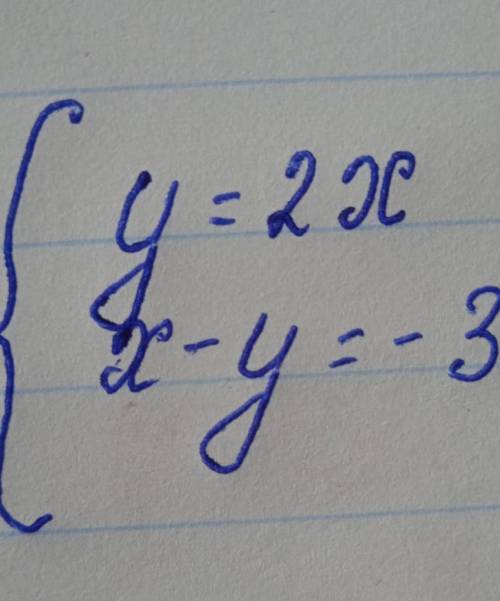 y = 2x
x - y = - 3